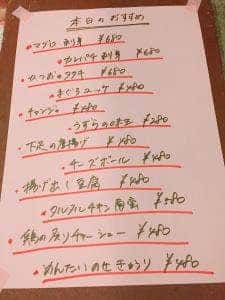 本日のおすすめ
・マグロ 刺身 ¥680
・カンパチ 刺身 ¥680
・かつおのタタキ ¥680
・まぐろユッケ ¥480
・チャンジャ ¥280
・うずらの味玉 ¥280
・下足の唐揚げ ¥480
・チーズボール ¥480
・揚げ出し豆腐 ¥480
・タルタルチキン南蛮 ¥580
・鶏の炙りチャーシュー ¥480
・めんたいのせきゅうり ¥480